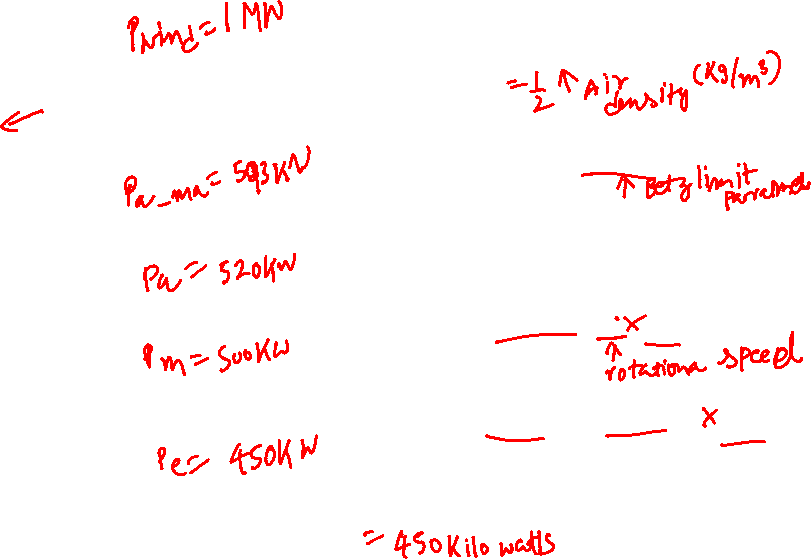 Pwind = 1 MW
= 1/2 ↑ Air density (Kg/m³)
Pa_ma = 593KW
↑ Betz limit
Pa = 520KW
Pm = 500KW
x
↑ rotationa speed
Pe = 450KW
x
= 450 Kilo watts